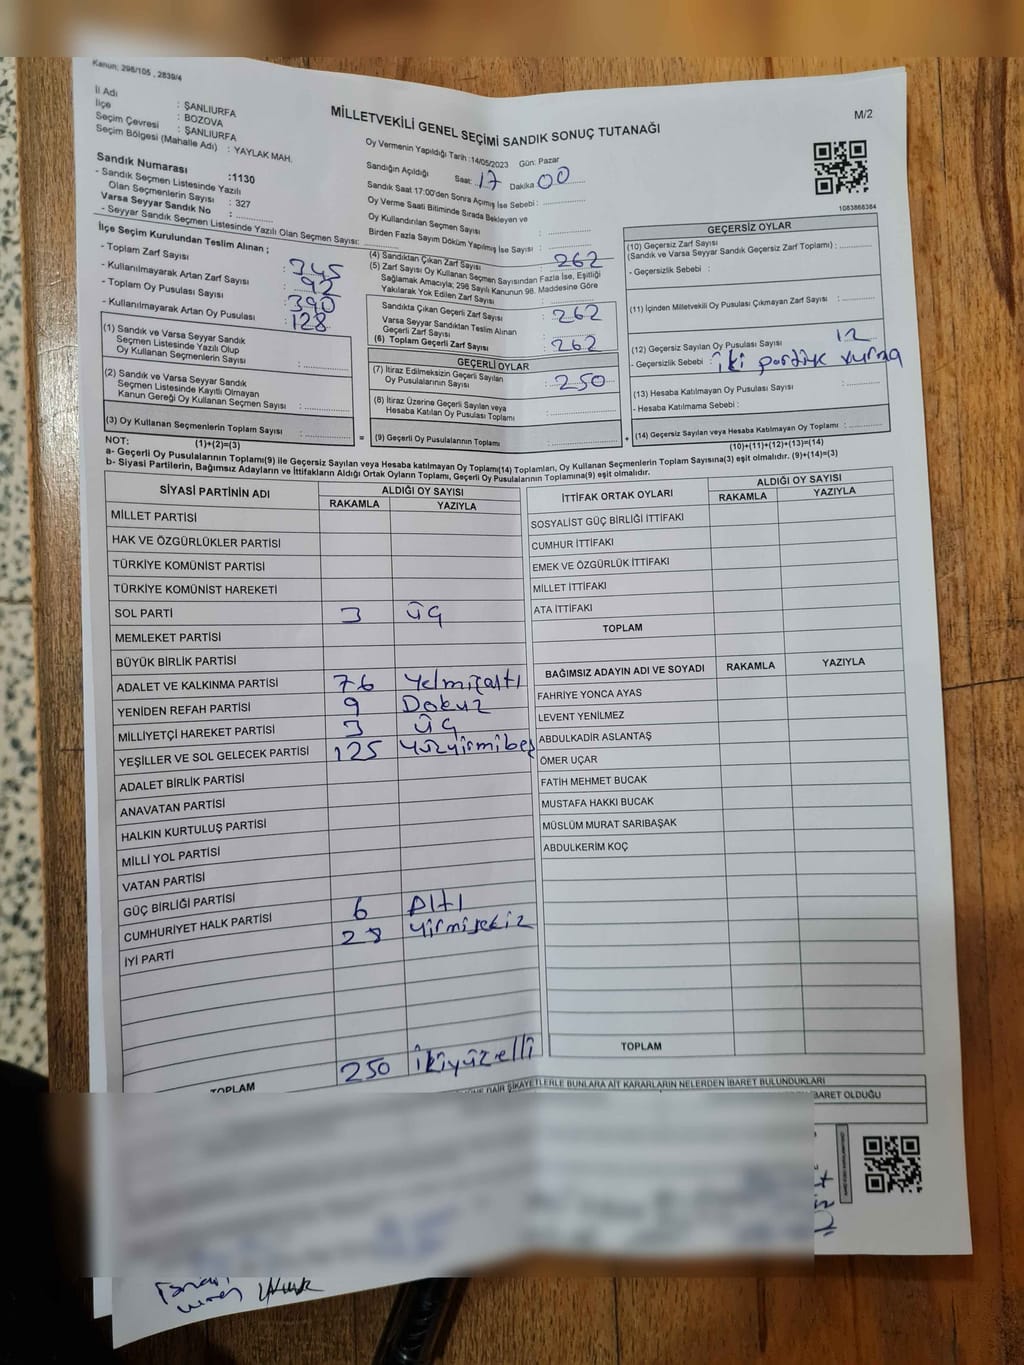 Kanun: 298/105 , 2839/4
İl Adı : ŞANLIURFA
İlçe : BOZOVA
Seçim Çevresi : ŞANLIURFA
Seçim Bölgesi (Mahalle Adı) : YAYLAK MAH.
MİLLETVEKİLİ GENEL SEÇİMİ SANDIK SONUÇ TUTANAĞI
M/2
Sandık Numarası :1130
- Sandık Seçmen Listesinde Yazılı
Olan Seçmenlerin Sayısı : 327
Varsa Seyyar Sandık No : ..............
- Seyyar Sandık Seçmen Listesinde Yazılı Olan Seçmen Sayısı: ..............
Oy Vermenin Yapıldığı Tarih :14/05/2023 Gün: Pazar
Sandığın Açıldığı Saat: 17 Dakika 00
Sandık Saat 17:00'den Sonra Açımış İse Sebebi : ..............
Oy Verme Saati Bitiminde Sırada Bekleyen ve
Oy Kullandırılan Seçmen Sayısı : ..............
Birden Fazla Sayım Döküm Yapılmış İse Sayısı : ..............
1083868384
İlçe Seçim Kurulundan Teslim Alınan ;
- Toplam Zarf Sayısı : 345
- Kullanılmayarak Artan Zarf Sayısı : 92
- Toplam Oy Pusulası Sayısı : 390
- Kullanılmayarak Artan Oy Pusulası : 128
(1) Sandık ve Varsa Seyyar Sandık
Seçmen Listesinde Yazılı Olup
Oy Kullanan Seçmenlerin Sayısı : ..............
(2) Sandık ve Varsa Seyyar Sandık
Seçmen Listesinde Kayıtlı Olmayan
Kanun Gereği Oy Kullanan Seçmen Sayısı : ..............
(3) Oy Kullanan Seçmenlerin Toplam Sayısı : ..............
(1)+(2)=(3)
(4) Sandıktan Çıkan Zarf Sayısı : 262
(5) Zarf Sayısı Oy Kullanan Seçmen Sayısından Fazla İse, Eşitliği
Sağlamak Amacıyla; 298 Sayılı Kanunun 98. Maddesine Göre
Yakılarak Yok Edilen Zarf Sayısı : ..............
Sandıkta Çıkan Geçerli Zarf Sayısı : 262
Varsa Seyyar Sandıktan Teslim Alınan
Geçerli Zarf Sayısı : ..............
(6) Toplam Geçerli Zarf Sayısı : 262
GEÇERLİ OYLAR
(7) İtiraz Edilmeksizin Geçerli Sayılan
Oy Pusulalarının Sayısı : 250
(8) İtiraz Üzerine Geçerli Sayılan veya
Hesaba Katılan Oy Pusulası Toplamı : ..............
= (9) Geçerli Oy Pusulalarının Toplamı : ..............
GEÇERSİZ OYLAR
(10) Geçersiz Zarf Sayısı
(Sandık ve Varsa Seyyar Sandık Geçersiz Zarf Toplamı) : ..............
- Geçersizlik Sebebi :
(11) İçinden Milletvekili Oy Pusulası Çıkmayan Zarf Sayısı : ..............
(12) Geçersiz Sayılan Oy Pusulası Sayısı : 12
- Geçersizlik Sebebi : iki partiye vurma
(13) Hesaba Katılmayan Oy Pusulası Sayısı : ..............
- Hesaba Katılmama Sebebi :
+ (14) Geçersiz Sayılan veya Hesaba Katılmayan Oy Toplamı : ..............
(10)+(11)+(12)+(13)=(14)
NOT:
a- Geçerli Oy Pusulalarının Toplamı(9) ile Geçersiz Sayılan veya Hesaba katılmayan Oy Toplamı(14) Toplamları, Oy Kullanan Seçmenlerin Toplam Sayısına(3) eşit olmalıdır. (9)+(14)=(3)
b- Siyasi Partilerin, Bağımsız Adayların ve İttifakların Aldığı Ortak Oyların Toplamı, Geçerli Oy Pusulalarının Toplamına(9) eşit olmalıdır.
SİYASİ PARTİNİN ADI ALDIĞI OY SAYISI
RAKAMLA YAZIYLA
MİLLET PARTİSİ
HAK VE ÖZGÜRLÜKLER PARTİSİ
TÜRKİYE KOMÜNİST PARTİSİ
TÜRKİYE KOMÜNİST HAREKETİ
SOL PARTİ 3 üç
MEMLEKET PARTİSİ
BÜYÜK BİRLİK PARTİSİ
ADALET VE KALKINMA PARTİSİ 76 Yetmişaltı
YENİDEN REFAH PARTİSİ 9 Dokuz
MİLLİYETÇİ HAREKET PARTİSİ 3 üç
YEŞİLLER VE SOL GELECEK PARTİSİ 125 Yüzyirmibeş
ADALET BİRLİK PARTİSİ
ANAVATAN PARTİSİ
HALKIN KURTULUŞ PARTİSİ
MİLLİ YOL PARTİSİ
VATAN PARTİSİ
GÜÇ BİRLİĞİ PARTİSİ
CUMHURİYET HALK PARTİSİ 6 Altı
İYİ PARTİ 28 Yirmisekiz
TOPLAM 250 ikiyüzelli
İTTİFAK ORTAK OYLARI ALDIĞI OY SAYISI
RAKAMLA YAZIYLA
SOSYALİST GÜÇ BİRLİĞİ İTTİFAKI
CUMHUR İTTİFAKI
EMEK VE ÖZGÜRLÜK İTTİFAKI
MİLLET İTTİFAKI
ATA İTTİFAKI
TOPLAM
BAĞIMSIZ ADAYIN ADI VE SOYADI RAKAMLA YAZIYLA
FAHRİYE YONCA AYAS
LEVENT YENİLMEZ
ABDULKADİR ASLANTAŞ
ÖMER UÇAR
FATİH MEHMET BUCAK
MUSTAFA HAKKI BUCAK
MÜSLÜM MURAT SARIBAŞAK
ABDULKERİM KOÇ
TOPLAM
DAİR ŞİKAYETLERLE BUNLARA AİT KARARLARIN NELERDEN İBARET BULUNDUKLARI
OLDUĞU